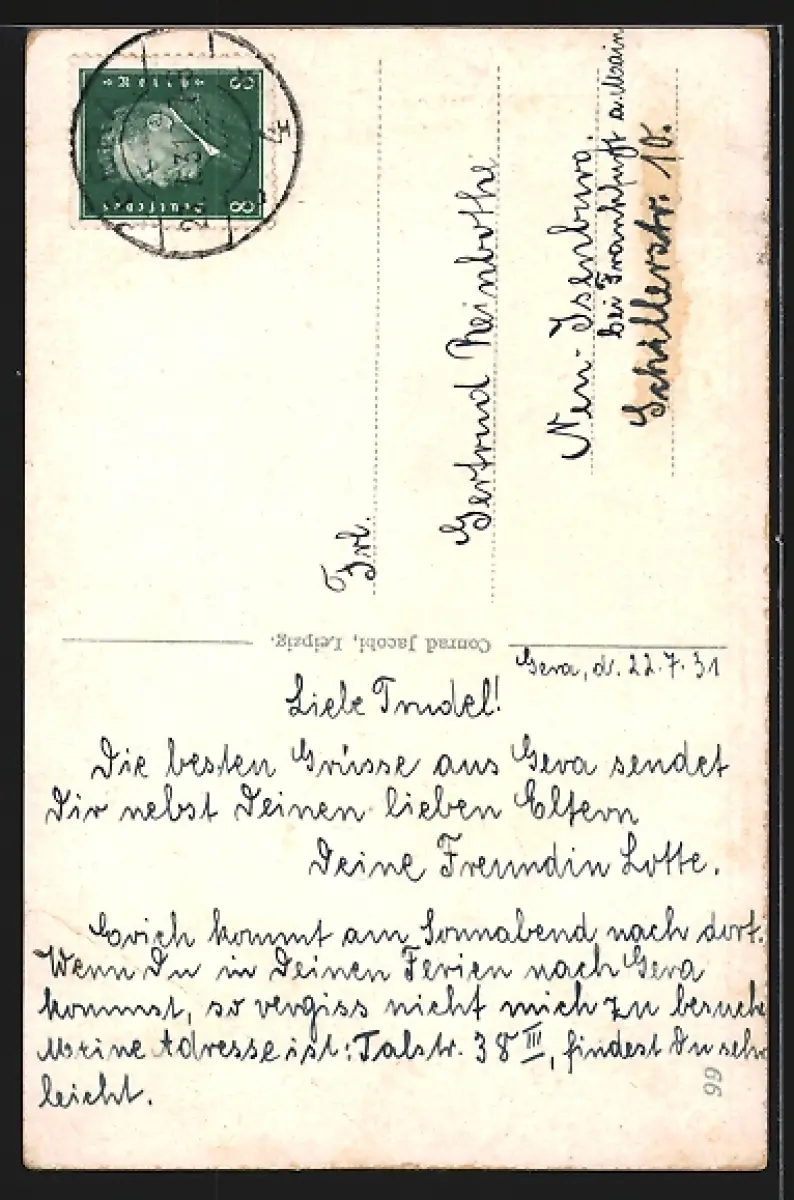 8 8
Deutsches Reich
Frl.
Gertrud Reinbothe
Neu-Isenburg.
bei Frankfurt a. Main
Schillerstr. 10.
Conrad Jacobi, Leipzig.
Gera, d. 22.7.31
Liebe Trudel!
Die besten Grüsse aus Gera sendet
Dir nebst Deinen lieben Eltern
Deine Freundin Lotte.
Erich kommt am Sonnabend nach dort.
Wenn Du in Deinen Ferien nach Gera
kommst, so vergiss nicht mich zu besuch
Meine Adresse ist: Talstr. 38 III, findest Du sehr
leicht.
66